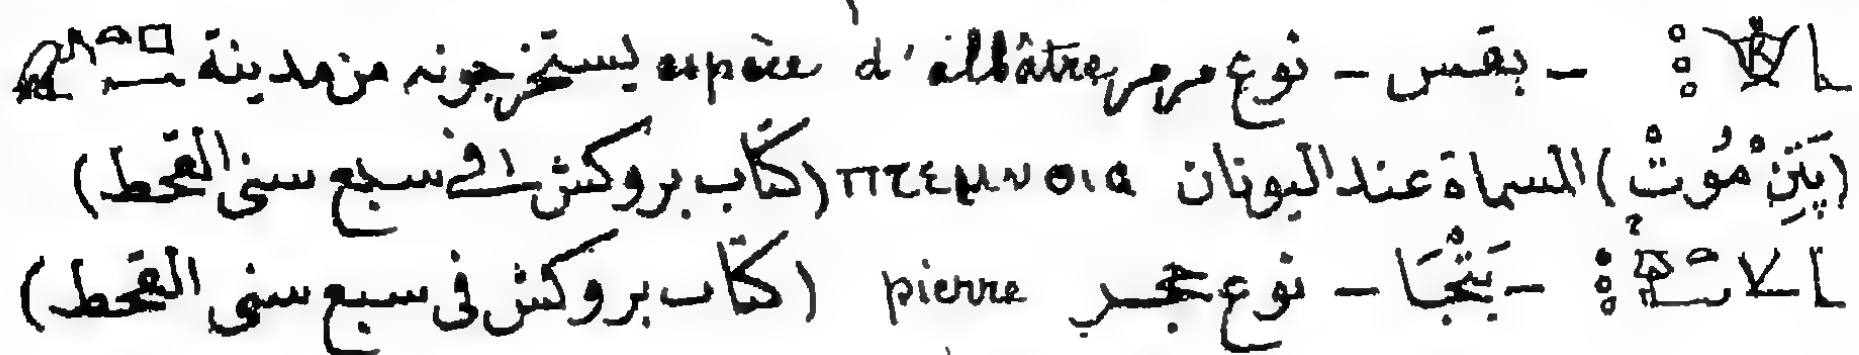 – بقس – نوع مرمر espèce d'albâtre يستخرجونه من مدينة
(پَتِنْ مُوتْ) المسماة عند اليونان πτεμνθια (كتاب بروكش ١ في سبع سنى القحط)
– بَتْجَا – نوع حجر pierre (كتاب بروكش فى سبع سنى القحط)